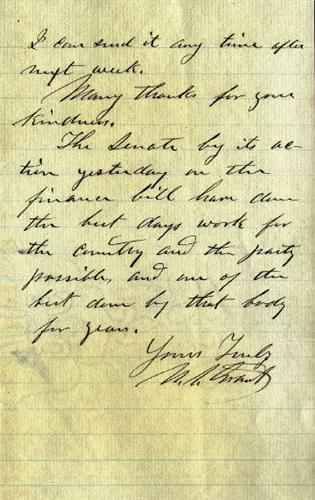 I can send it any time after
next week.
Many thanks for your
kindness.
The Senate by its ac-
tion yesterday on the
finance bill have done
the best days work for
the country and the party
possible, and one of the
best done by that body
for years.
Yours Truly
U. S. Grant